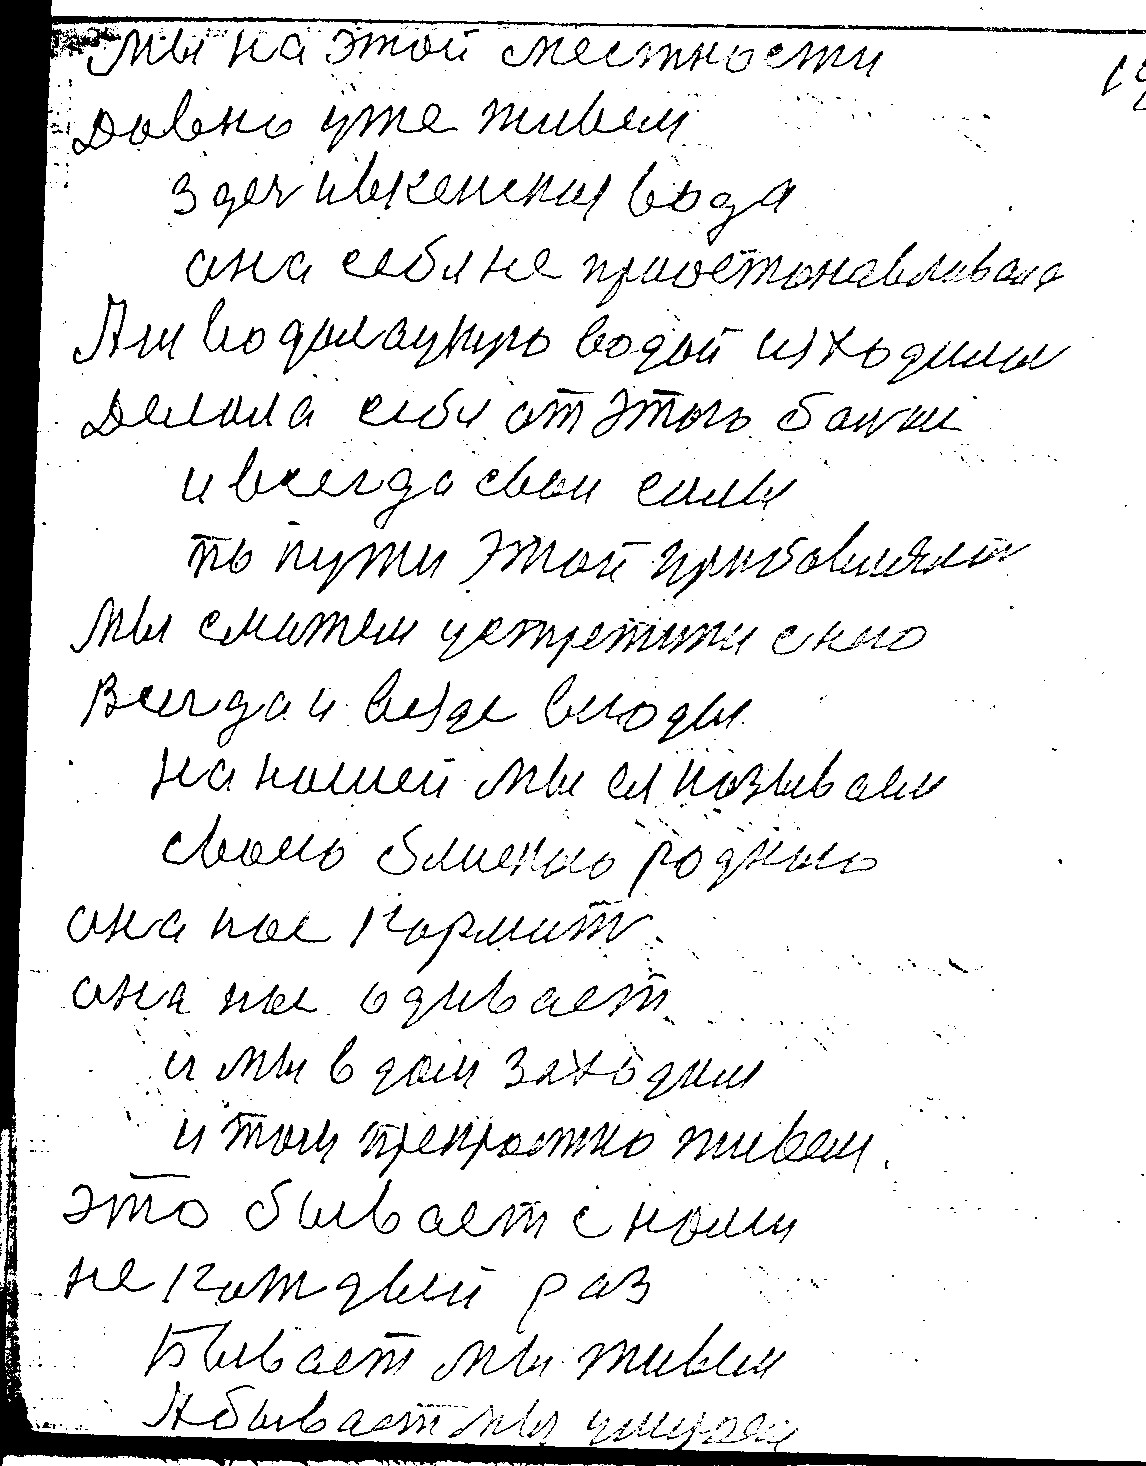 мы на этой местности
довно уже живем
здеч ивкенская вода
она себя не приостонавливала
водой изходили
Делала себя от этого
и всегда свои силы
по пути этой прибовляет
мы сможем устретити с ню
Всегда и везде
на нашей мы ея называем
свою близкаю родною
она нас кормит
она нас одивает
и мы в дом заходим
и там живем.
это бывает с нами
не каждый раз
Бывает мы живем
А бывает мы умираем